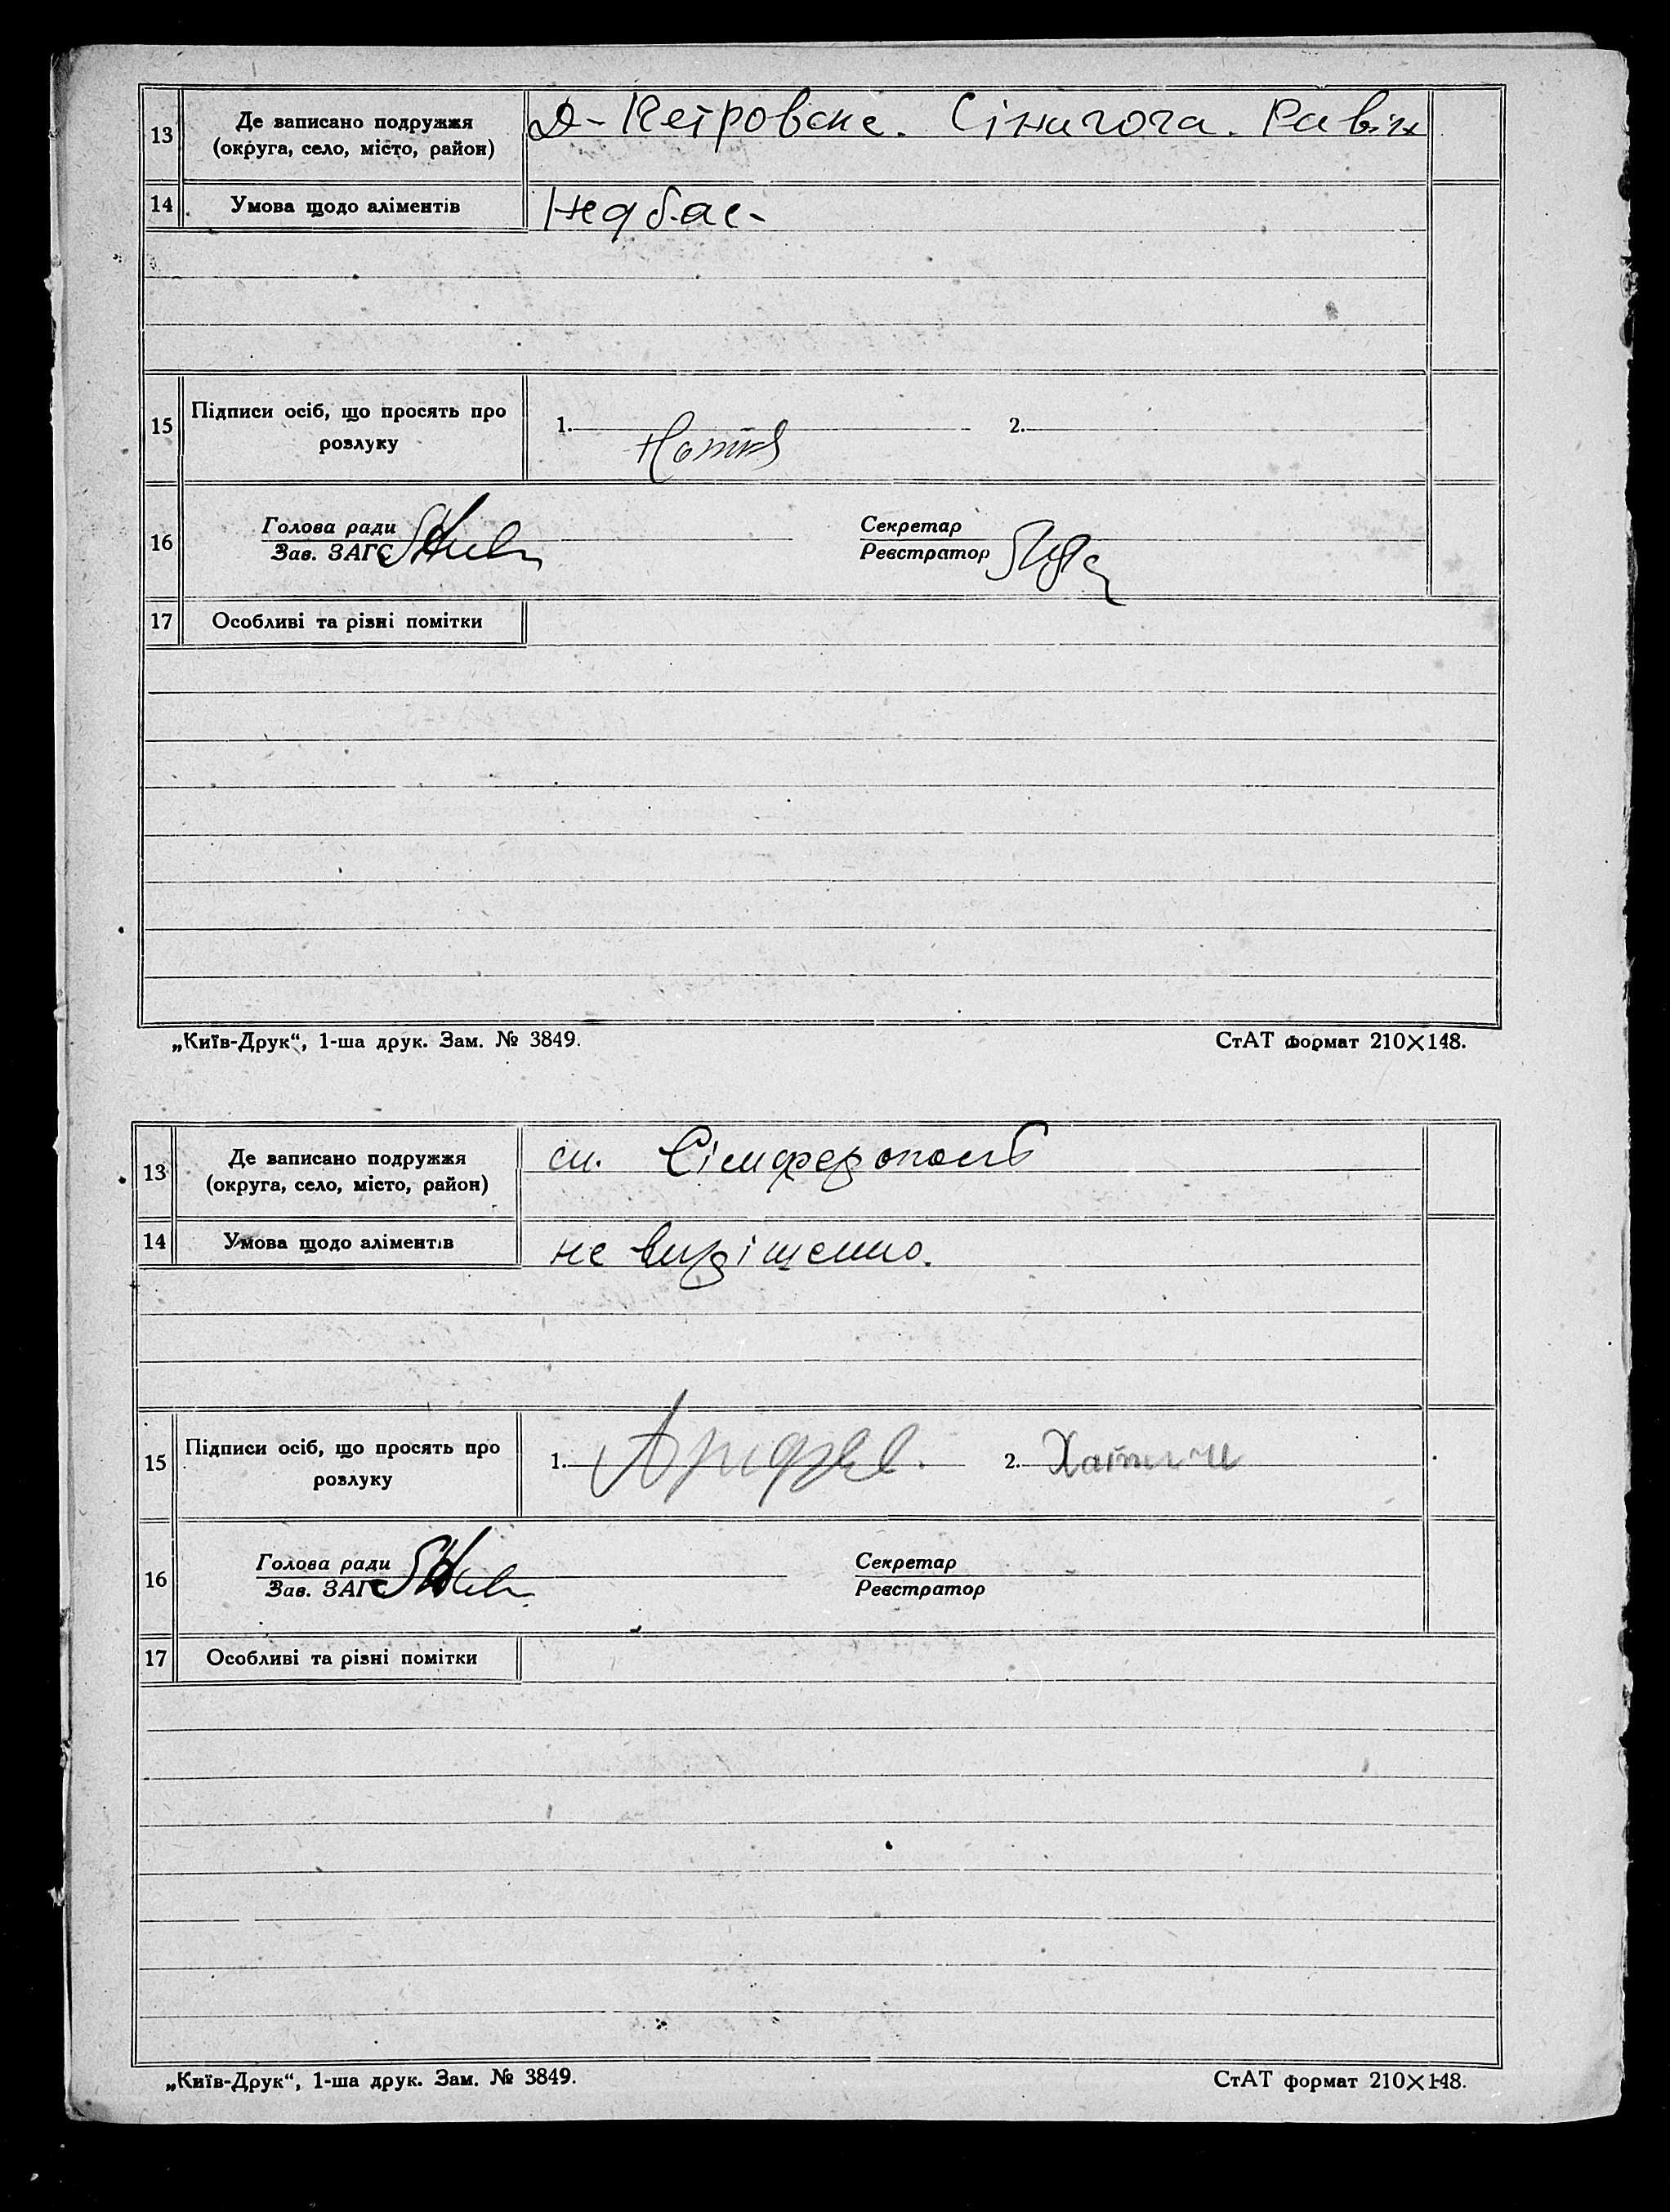 13
Де записано подружжя
(округа, село, місто, район)
Д-Петровске. Сінагога. Равін
14
Умова щодо аліментів
15
Підписи осіб, що просять про
розлуку
1.
2.
16
Голова ради
Зав. ЗАГС
Секретар
Реєстратор
17
Особливі та різні помітки
„Київ-Друк“, 1-ша друк. Зам. № 3849.
СтАТ формат 210×148.
13
Де записано подружжя
(округа, село, місто, район)
м. Сімферополь
14
Умова щодо аліментів
не вирішенно.
15
Підписи осіб, що просять про
розлуку
1.
2.
16
Голова ради
Зав. ЗАГС
Секретар
Реєстратор
17
Особливі та різні помітки
„Київ-Друк“, 1-ша друк. Зам. № 3849.
СтАТ формат 210×148.